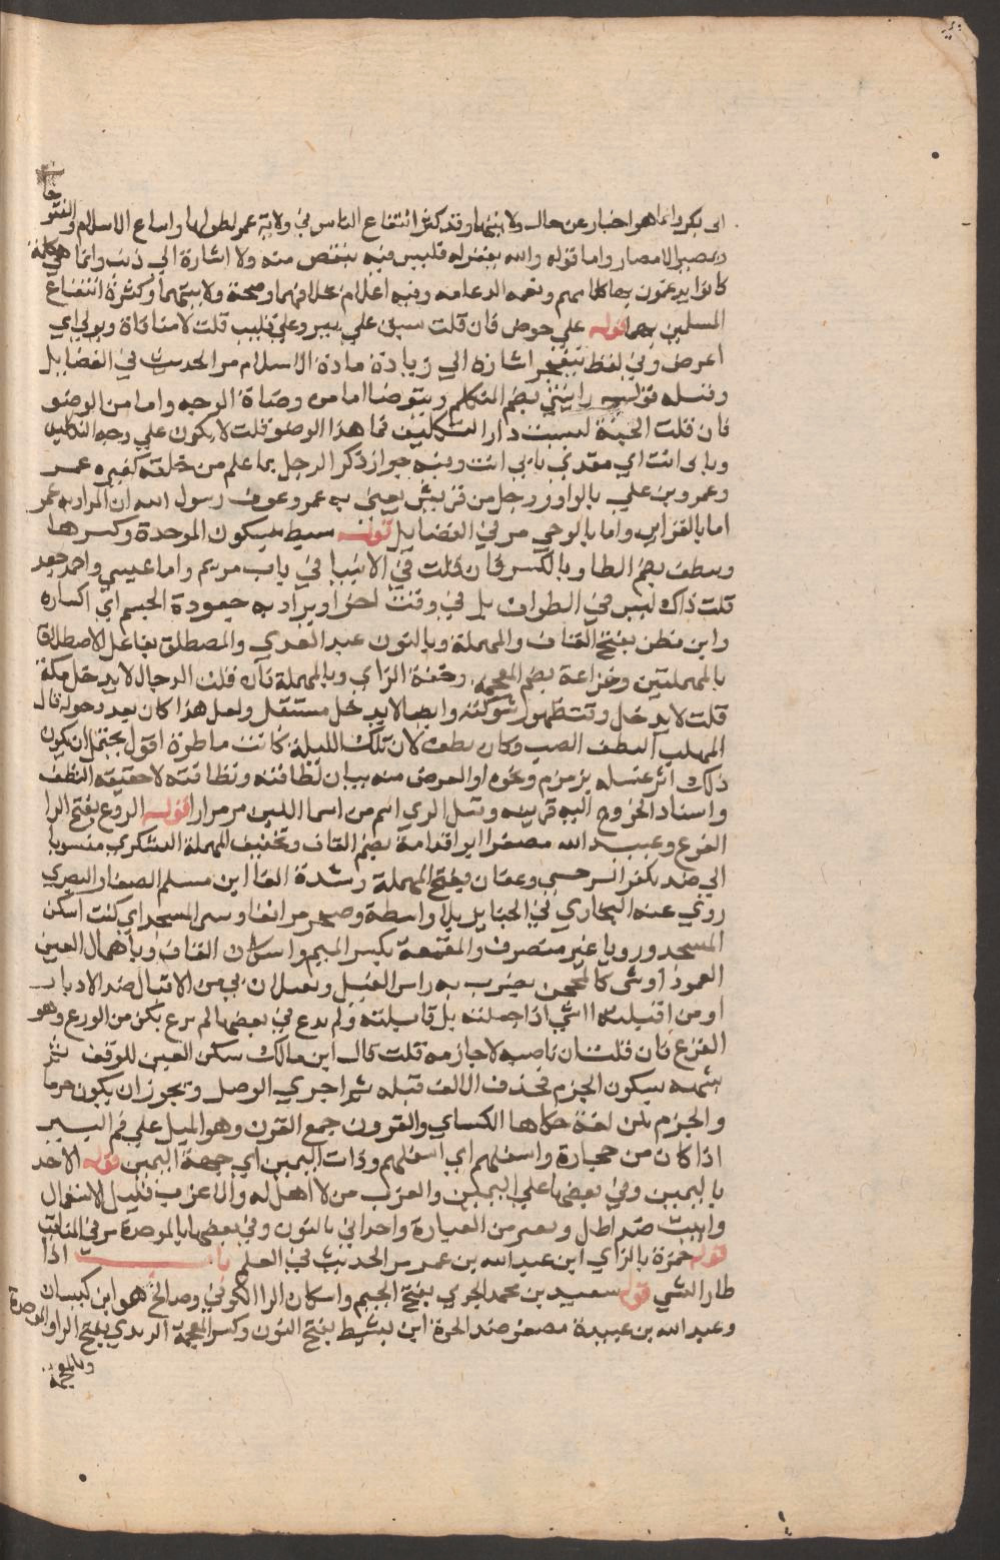 ابى بكر وانما هو اخبار عن حال ولايتهما وقد كثر انتفاع الناس في ولاية عمر لطولها واتساع الاسلام والفتوحات
وتمصير الامصار واما قوله والله يغفر له فليس فيه ينقص منه ولا اشارة الي ذنب وانما هي كلمة
كانوا يدعمون بها كلامهم ونعمه الدعامه وفيه اعلام بخلافتهما وصحة ولايتهما وكثرة انتفاع
المسلمين بهما قوله علي حوض فان قلت سبق علي بير وعلي قليب قلت لا منافاة ويولي اي
اعرض وفي لفظ يتفجر اشارة الي زيادة مادة الاسلام مر الحديث في الفضايل
وقبله قوله رايتني بضم المتكلم ويتوضا اما من وضاة الوجه واما من الوضو
فان قلت الجنة ليست دار التكليف فما هذا الوضو قلت لا يكون علي وجه التكليف
وبابى انت اي مفدي بابي انت وفيه جواز ذكر الرجل بما علم من خلقه كغيرة عمر
وعمرو بن علي بالواو ورجل من قريش يعنى به عمر وعرف رسول الله ان المراد به عمر
اما بالقراين واما بالوحي مر في الفضايل قوله سبط بسكون الموحدة وكسرها
وينطف بضم الطا وبالكسر فان قلت في الانبيا في باب مريم واما عيسى واحمر جعد
قلت ذاك ليس في الطواف بل في وقت اخر او يراد به جعودة الجسم اي اكتنازه
وابن قطن بفتح القاف والمهملة وبالنون عبد العزي والمصطلق بفاعل الاصطلاق
بالمهملتين وخزاعة بضم المعجمة وخفة الزاي وبالمهملة فان قلت الدجال لا يدخل مكة
قلت لا يدخل وقت ظهور شوكته وايضا لا يدخل مستقبل ولعل هذا كان بعد دخوله قال
المهلب النطف الصب وكان ينطف لان تلك الليلة كانت ماطرة اقول يحتمل ان يكون
ذلك اثر غسله بزمزم ونحوه او الغرض منه بيان لطافته ونظافته لا حقيقة النطف
واسناد الخروج اليه قرينه وقيل الري اسم من اسما اللبن مر مرارا قوله الروع بفتح الرا
الفزع وعبيد الله مصغرا ابو قدامة بضم القاف وتخفيف المهملة اليشكري منسوبا
الي ضد يكفر السرخسي وعفان وبفتح المهملة وشدة الفا ابن مسلم الصفار البصري
روي عنه البخاري في الجنايز بلا واسطة وصخر مر انفا وبيتى المسجد اي كنت اسكن
المسجد ورويا غير منصرف والمقمعة بكسر الميم واسكان القاف وباهمال العين
العمود او شى كالمحجن يضرب به راس الفيل ويقبلان بى من الاقبال ضد الادبار
او من اقبلته الشي اذا جعلته بل قابلته ولم يرع في بعضها لم ترع بكن من الورع وهو
الفزع فان قلت لن ناصبه لا جازمه قلت قال ابن مالك سكن العين للوقف ثم
شبهه بسكون الجزم فحذف الالف قبله ثم اجري الوصل ويجوز ان يكون جزما
والجزم بلن لغة حكاها الكساي والقرون جمع القرن وهو الميل علي فم البير
اذا كان من حجارة واسفلهم اي اسفلهم وذات اليمين اي جهة اليمين قوله الاخذ
باليمين وفي بعضها علي اليمين والعزب من لا اهل له والاعزب قليل الاستعمال
وابيت ضد اظل ويعبر من العبارة واحراني بالنون وفي بعضها بالموحدة مر في المناقب
قوله حمزة بالزاي ابن عبد الله بن عمر مر الحديث في العلم باب اذا
طار الشي قوله سعيد بن محمد الجرمي بفتح الجيم واسكان الرا الكوفي وصالح هو ابن كيسان
وعبد الله بن عبيدة مصغر ضد الحرة ابن نشيط بفتح النون وكسر المعجمة الربذي بفتح الرا والموحدة
وبالمعجمة